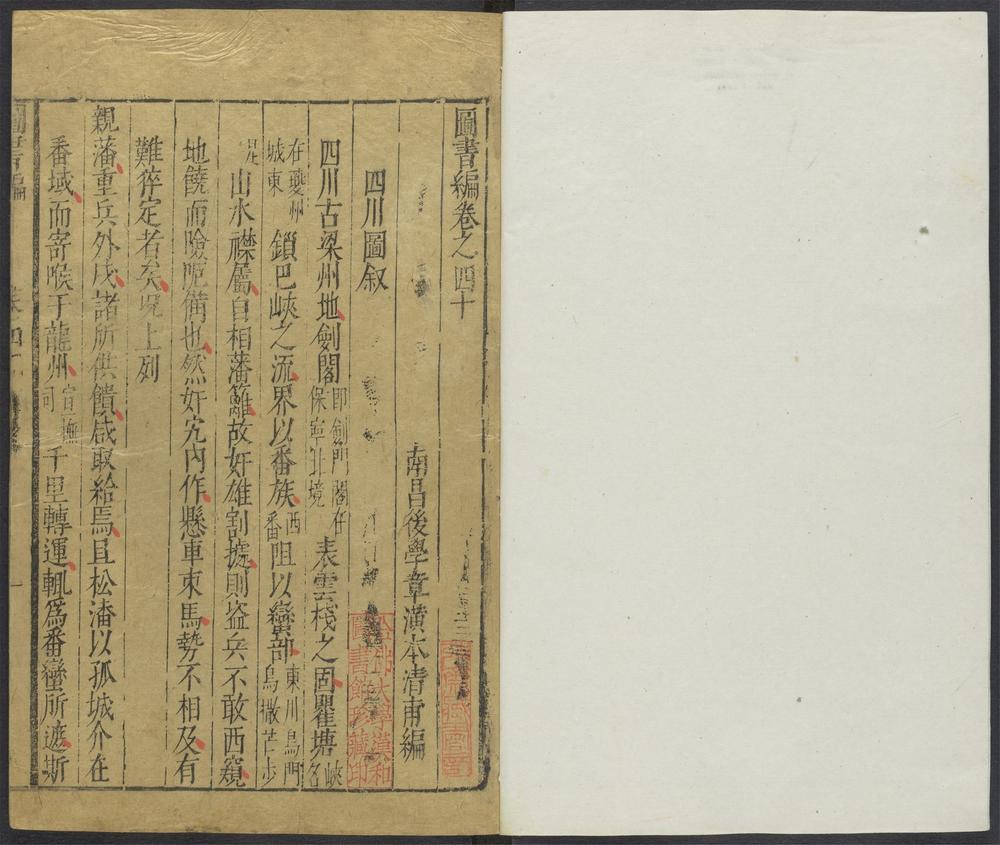 圖書編卷之四十
南昌後學章潢本清甫編
四川圖叙
四川古梁州地劍閣即劍門閣在保寧北境表雲棧之固瞿塘峽名
在夔州城東鎖巴峽之流界以番族西番阻以蠻部東川烏門烏撒芒步
是山水襟屬自相藩籬故奸雄割據則盜兵不敢西窺
地饒而險阨備也然奸宄內作懸車束馬勢不相及有
難猝定者矣況上列
親藩重兵外戍諸所供饋咸取給焉且松潘以孤城介在
番域而寄喉于龍州宣撫司千里轉運輒爲番蠻所遮斯
圖書編
哈佛大學漢和圖書館珍藏印